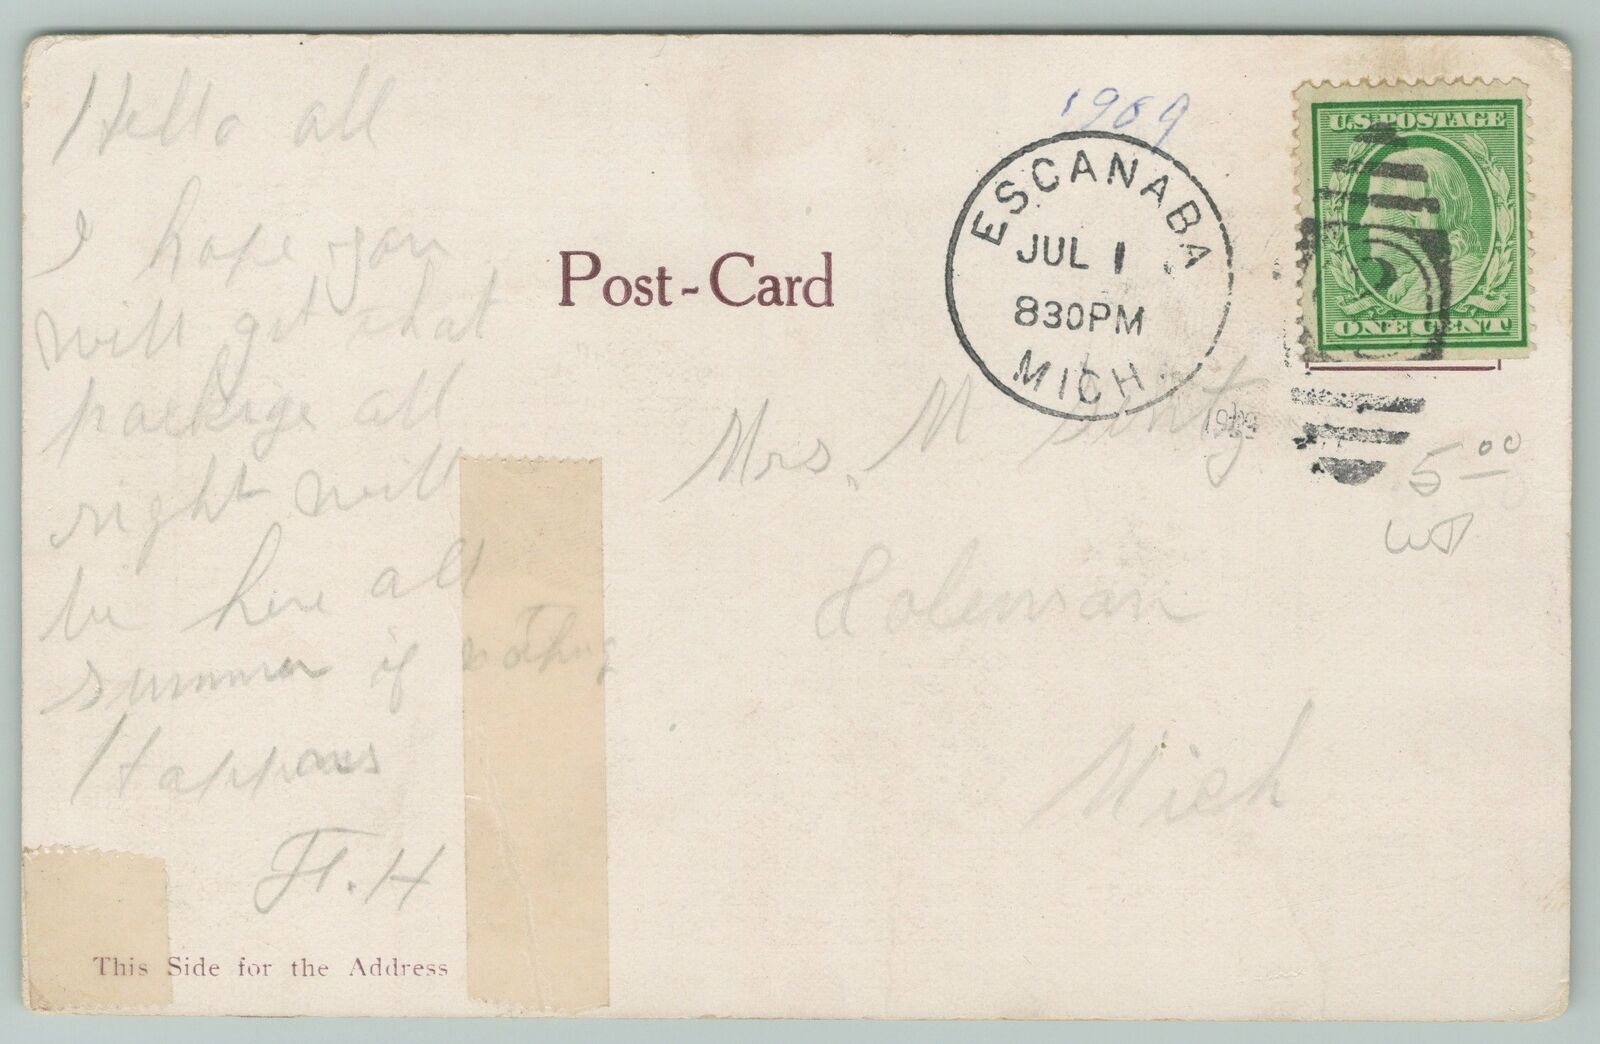 Hello all
I hope you
will get that
package all
right will
be here all
summer if nothing
Happens
H. H
This Side for the Address
Post-Card
1909
ESCANABA
JUL 1
830PM
MICH.
U.S. POSTAGE
ONE CENT
Mrs. M
Coleman
Mich
1909
5.00